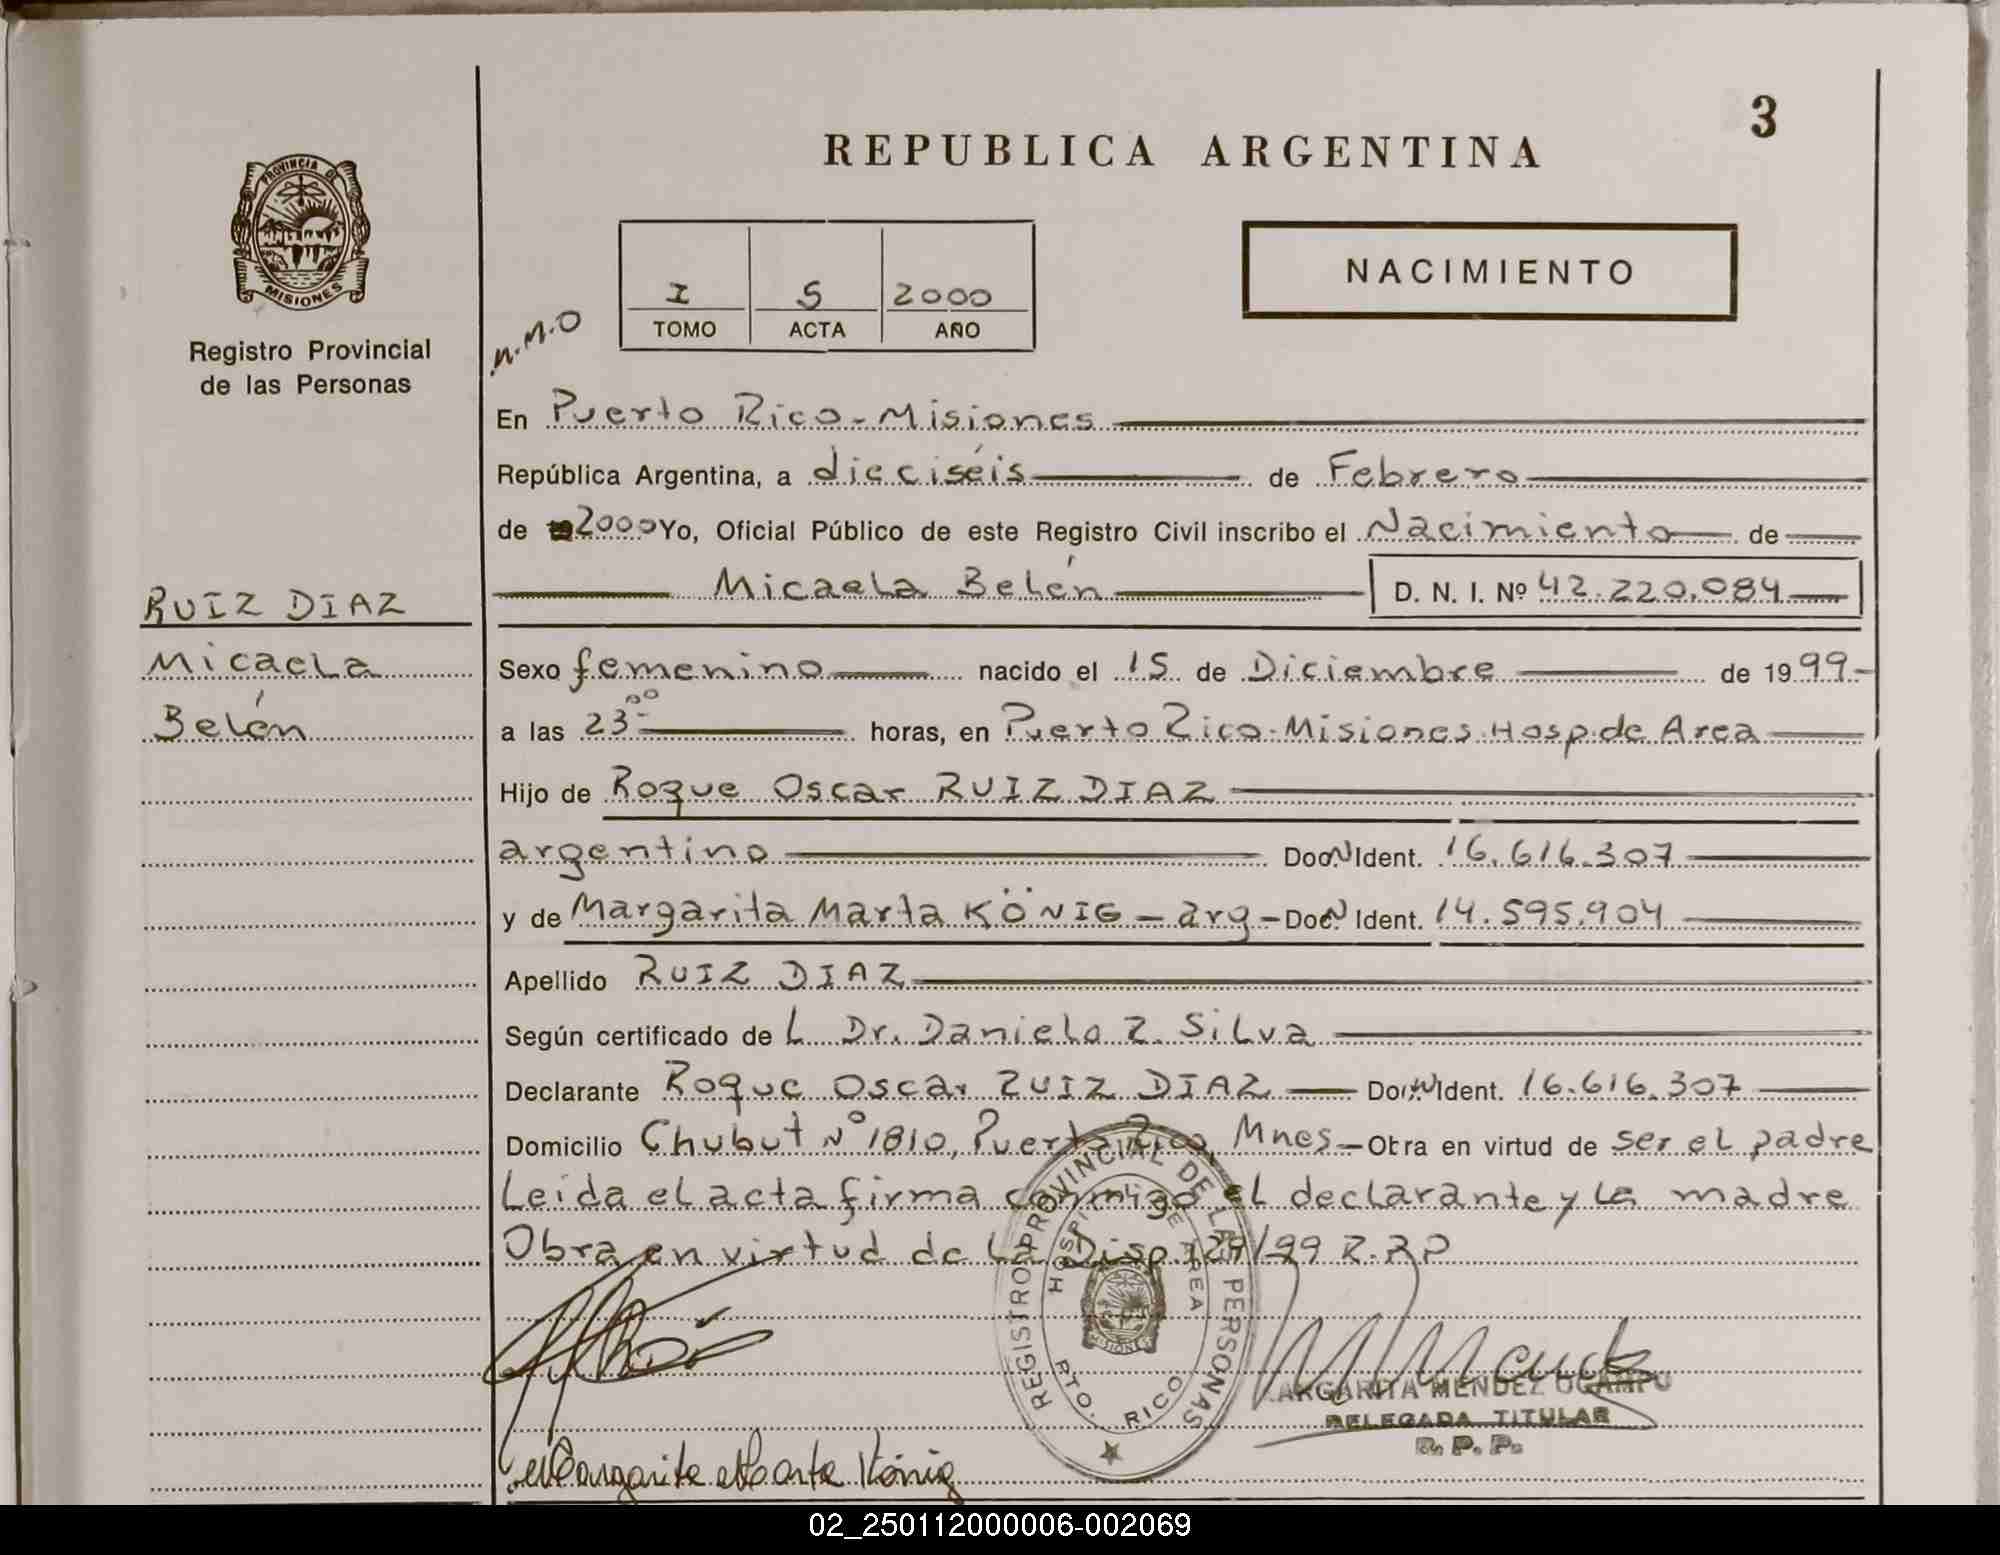 3
REPUBLICA ARGENTINA
PROVINCIA DE
MISIONES
Registro Provincial
de las Personas
I 5 2000
TOMO ACTA AÑO
NACIMIENTO
M.M.O
En Puerto Rico - Misiones
República Argentina, a dieciséis de Febrero
de 2000 Yo, Oficial Público de este Registro Civil inscribo el Nacimiento de
Micaela Belén D. N. I. Nº 42.220.084
RUIZ DIAZ
Micaela
Belén
Sexo femenino nacido el 15 de Diciembre de 1999-
a las 23 00 horas, en Puerto Rico-Misiones Hosp. de Area
Hijo de Roque Oscar RUIZ DIAZ
argentino Doc. Ident. 16.616.307
y de Margarita Marta KÖNIG - arg - Doc. Ident. 14.595.904
Apellido RUIZ DIAZ
Según certificado de L Dr. Daniel R. Silva
Declarante Roque Oscar RUIZ DIAZ Doc. Ident. 16.616.307
Domicilio Chubut Nº 1810, Puerto Rico, Mnes - Obra en virtud de ser el padre
Leida el acta firma conmigo el declarante y la madre
Obra en virtud de la Disp. 129/99 R.P.P
REGISTRO PROVINCIAL DE LAS PERSONAS
HOSPITAL DE AREA
PTO. RICO
MISIONES
MARGARITA MENDEZ OCAMPO
DELEGADA TITULAR
R. P. P.
Margarita Marta König
02_250112000006-002069